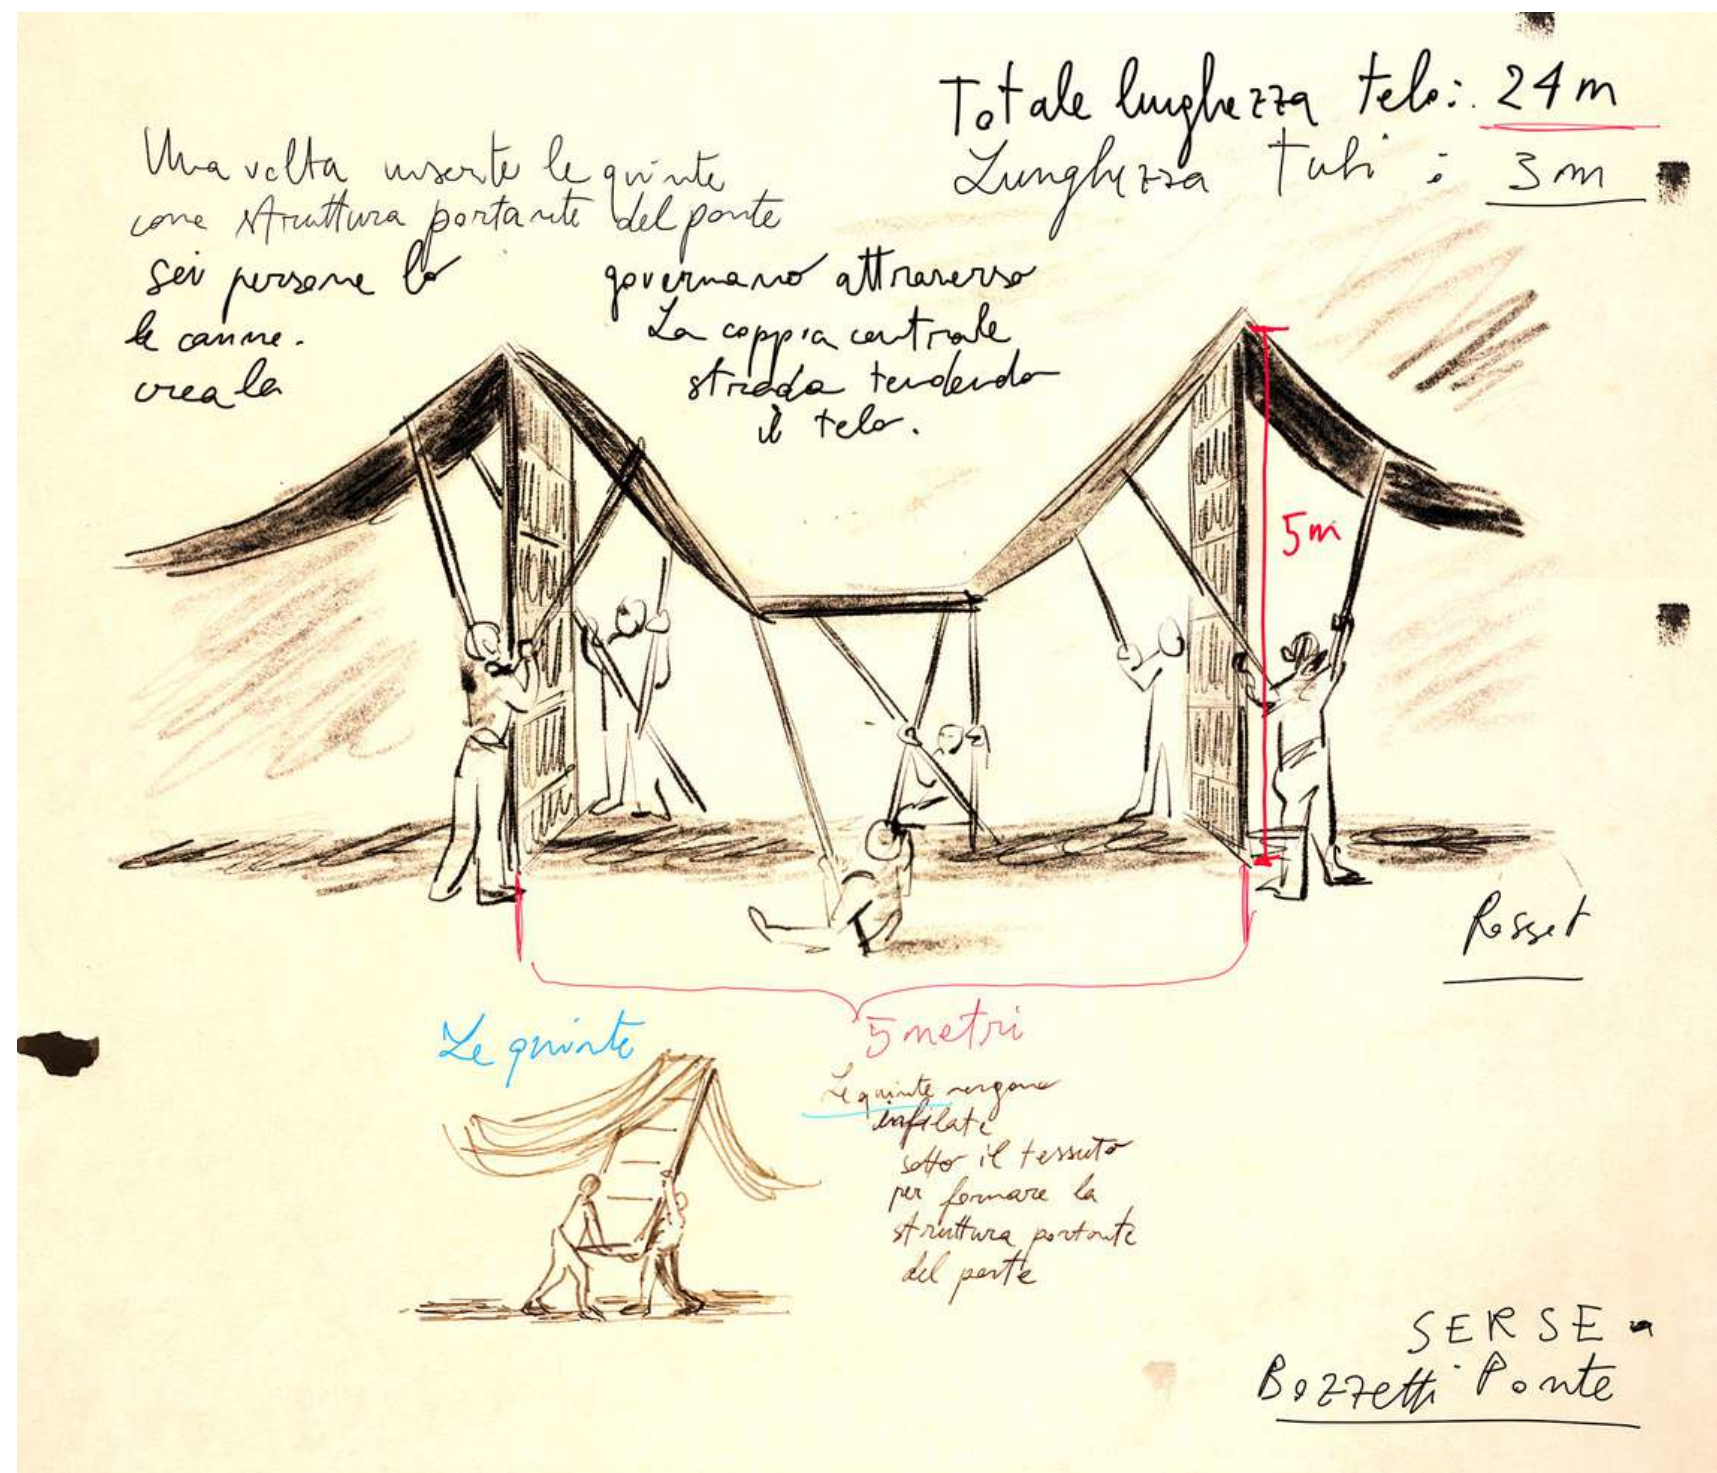 Totale lunghezza telo: 24 m
Lunghezza Tubi : 3 m
Una volta inserite le quinte
come struttura portante del ponte
sei persone lo governano attraverso
le canne. La coppia centrale
crea la strada tendendo
il telo.
5m
Rosset
Le quinte
5 metri
Le quinte vengono
infilate
sotto il tessuto
per formare la
struttura portante
del ponte
SERSE -
Bozzetti Ponte